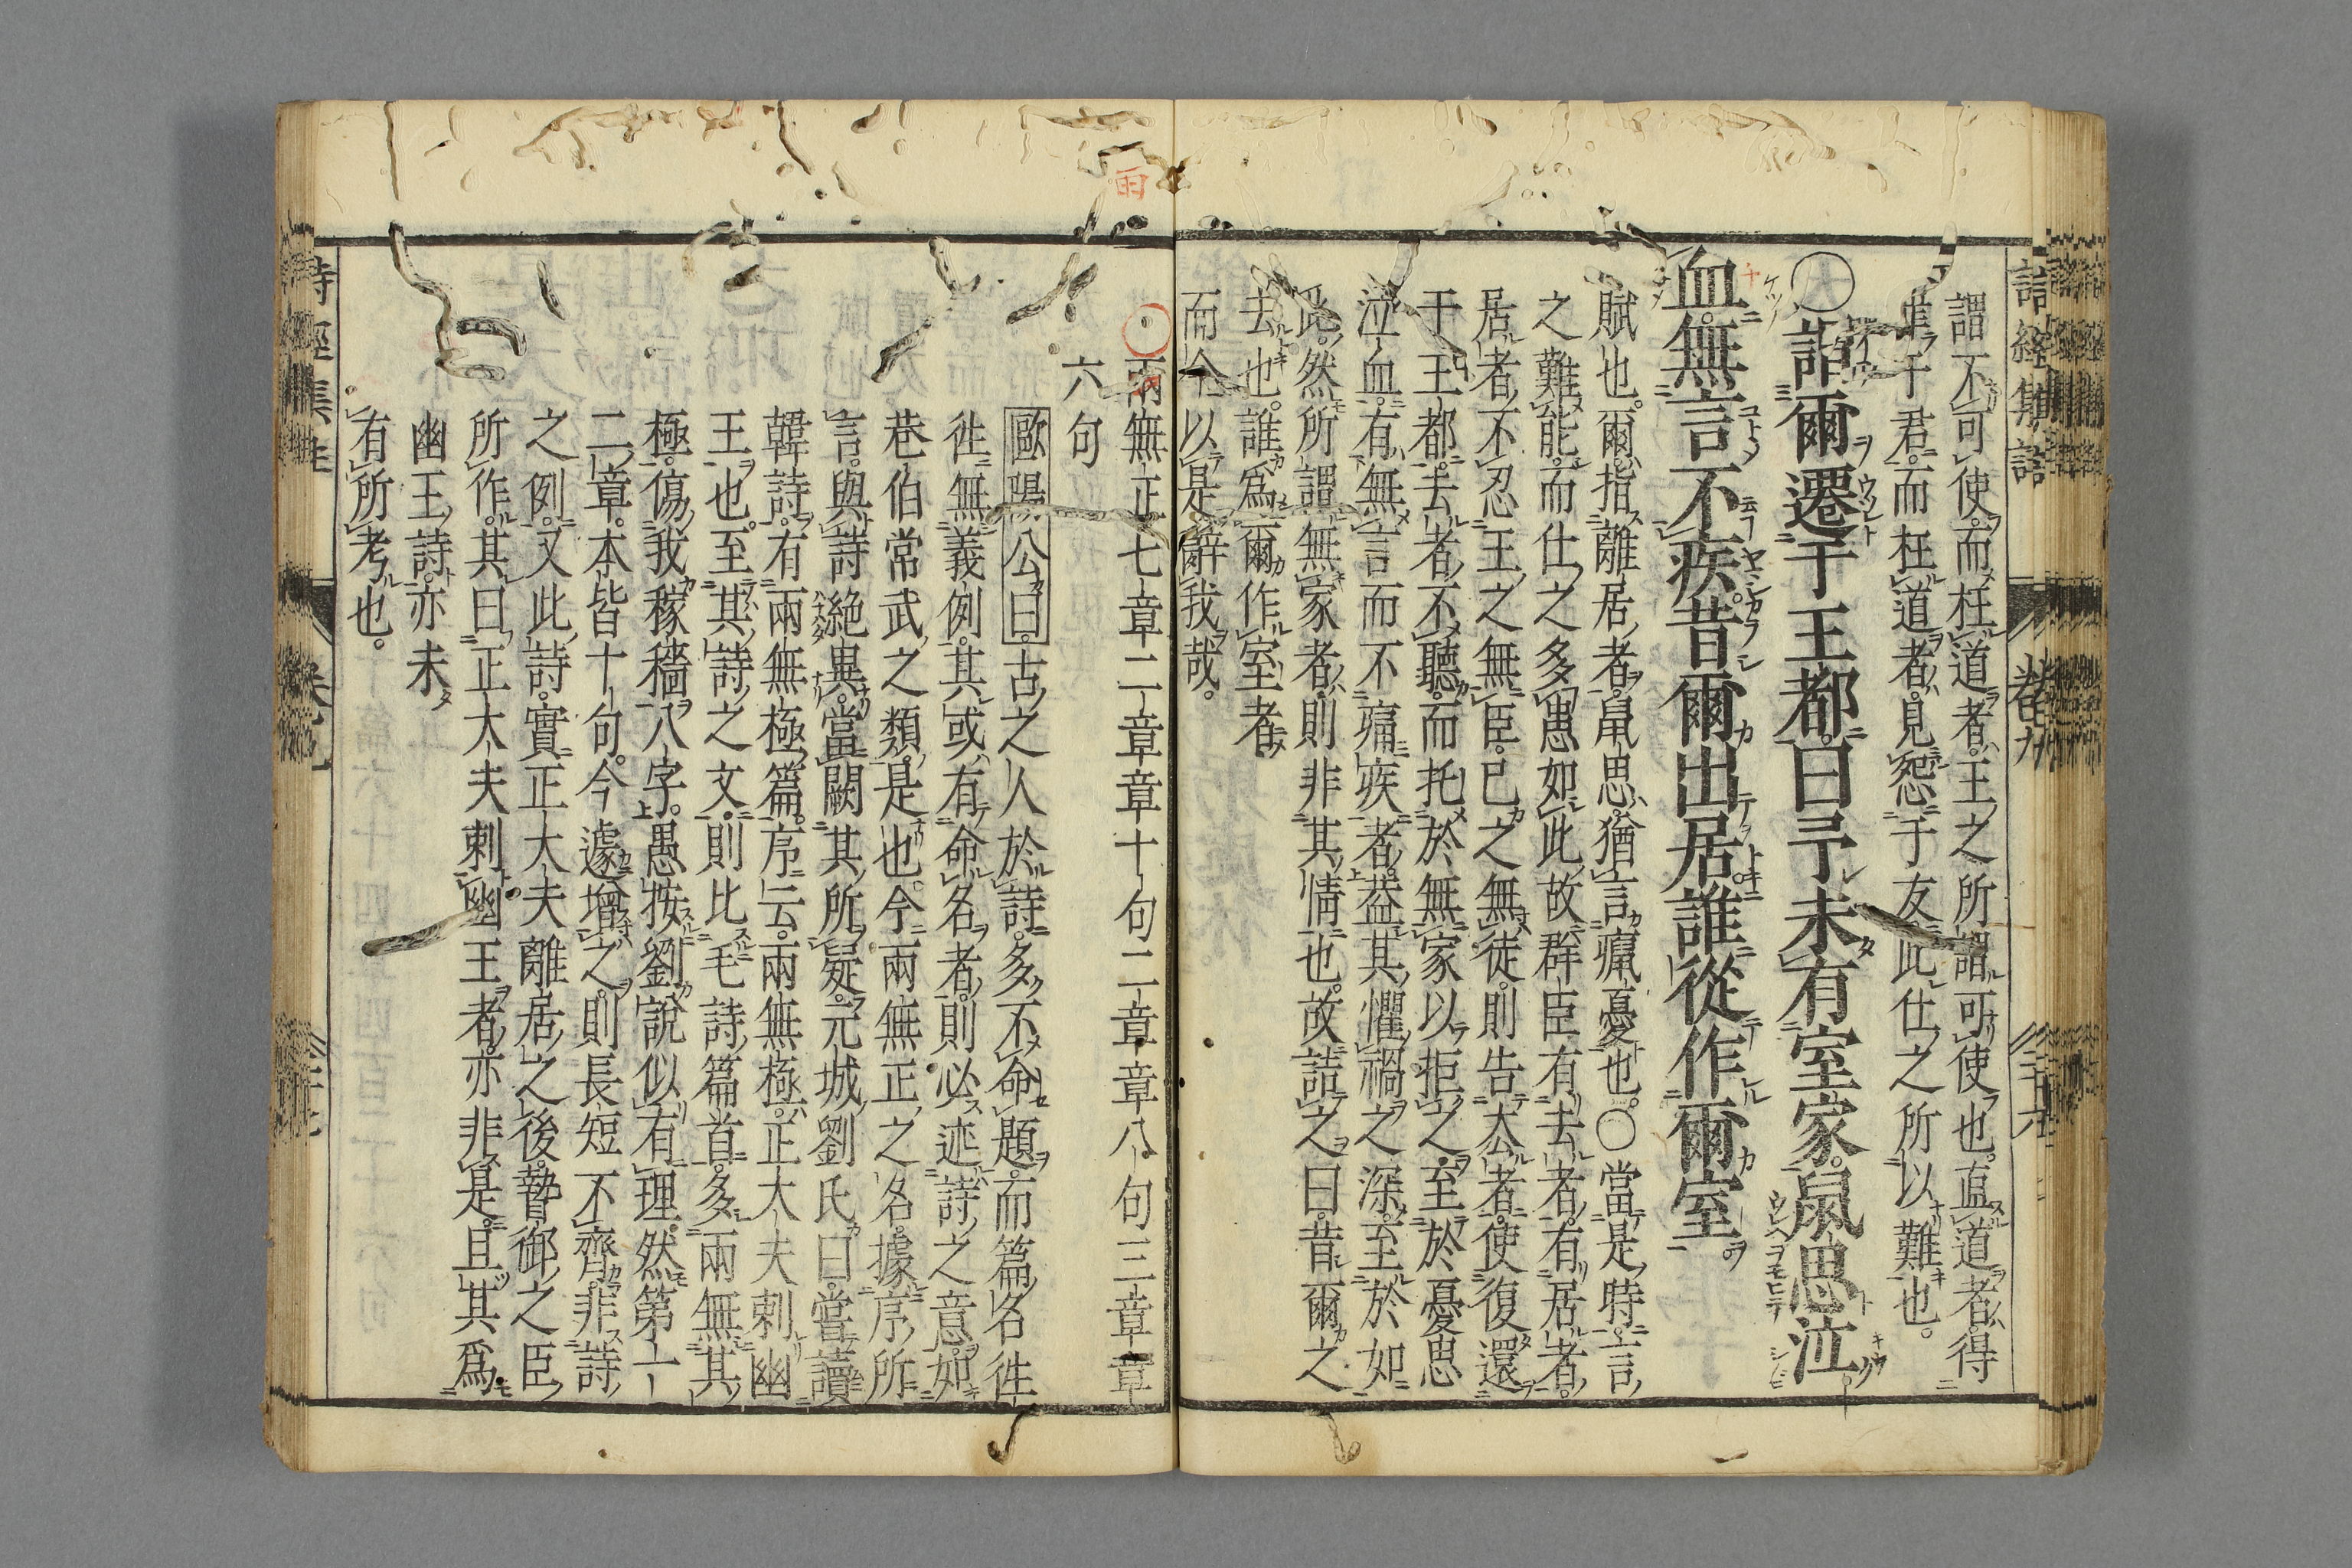 謂不可使。而枉道者。王之所謂可使也。直道者。得
罪于君。而枉道者。見怨于友。此仕之所以難也。
〇謂爾遷于王都。曰予未有室家。鼠思泣
血。無言不疾。昔爾出居。誰從作爾室。
賦也。爾。指離居者。鼠思。猶言癙憂也。〇當是時。言
之難能。而仕之多患如此。故群臣有去者。有居者。
居者。不忍王之無臣。已之無徒。則告去者。使復還
于王都。去者不聽。而托於無家以拒之。至於憂思
泣血。有無言而不痛疾者。蓋其懼禍之深。至於如
此。然所謂無家者。則非其情也。故詰之曰。昔爾之
去也。誰爲爾作室者
而今以是辭我哉。
雨無正七章二章章十句二章章八句三章章
六句
歐陽公曰。古之人於詩。多不命題。而篇名徃
徃無義例。其或有命名者。則必述詩之意。如
巷伯常武之類是也。今雨無正之名。據序所
言。與詩絶異。當闕其所疑。元城劉氏曰。嘗讀
韓詩。有雨無極篇。序云。雨無極。正大夫刺幽
王也。至其詩之文。則比毛詩篇首。多雨無其
極。傷我稼穡八字。愚按劉說似有理。然第一
二章。本皆十句。今遽增之。則長短不齊。非詩
之例。又此詩。實正大夫離居之後。暬御之臣
所作。其曰正大夫刺幽王者。亦非是。且其爲
幽王詩。亦未
有所考也。
詩經集註
卷九
三十六
詩經集註